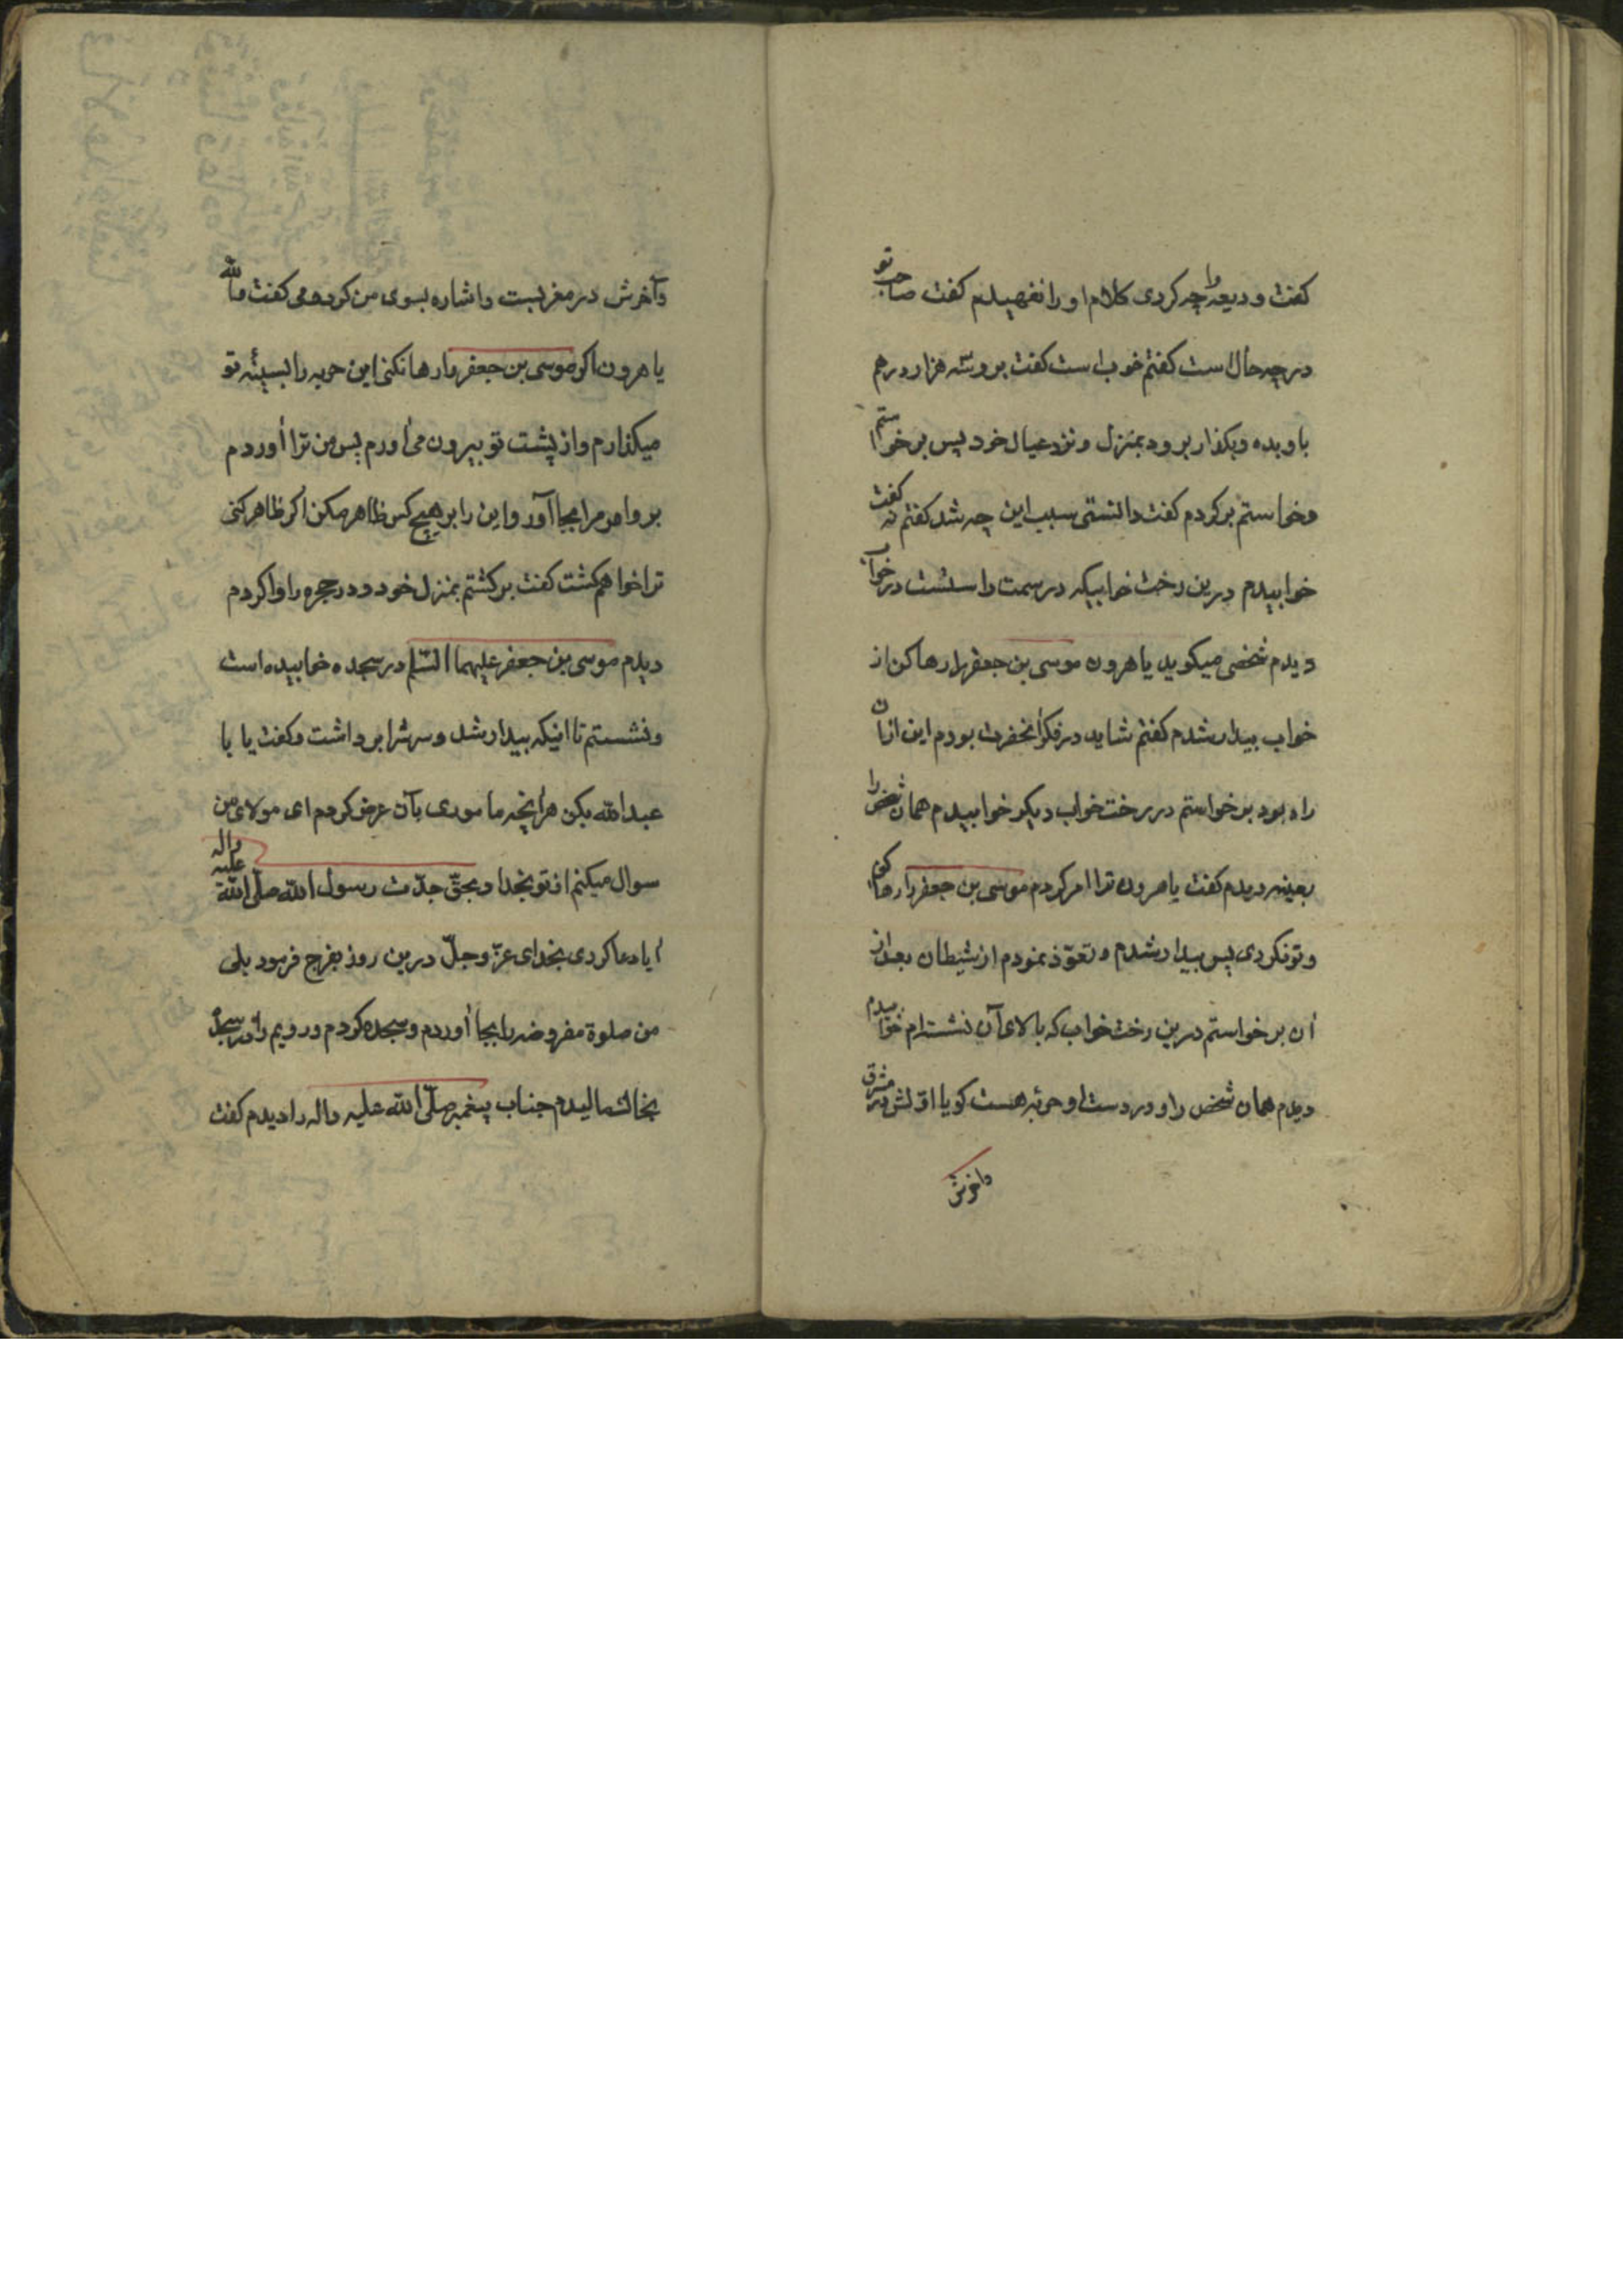 کفت ودیعه را چه کردی کلام او را نفهمیدم کفت صاحب تو
در چه حال است کفتم خوب است کفت برو سه هزار درهم
باو بده و بکذار برود بمنزل و نزد عیال خود پس برخواستم
و خواستم برکردم کفت دانستی سبب این چه شد کفتم نه کفت
خوابیدم درین رخت خوابیکه در سمت راستست در خواب
دیدم شخصی میکوید یا هرون موسی بن جعفر را رها کن از
خواب بیدار شدم کفتم شاید در فکر آنحضرت بودم این ازان
راه بود برخواستم در رخت خواب دیکر خوابیدم همان شخص را
بعینه دیدم کفت یا هرون ترا امر کردم موسی بن جعفر را رها کن
و تو نکردی پس بیدار شدم و تعوّذ نمودم از شیطان بعد از
آن برخواستم درین رخت خواب که بالای آن نشسته‌ام خوابیدم
دیدم همان شخص را و در دست او حربه هست کویا اوّلش در مشرق
وآخرش
وآخرش در مغربست و اشاره بسوی من کرده می کفت والله
یا هرون اکر موسی بن جعفر را رها نکنی این حربه را بسینهٔ تو
میکذارم و از پشت تو بیرون می آورم پس من ترا آوردم
برو امر مرا بجا آور و این را بر هیچ کس ظاهر مکن اکر ظاهر کنی
ترا خواهم کشت کفت برکشتم بمنزل خود و در حجره را وا کردم
دیدم موسی بن جعفر علیهما السّلام در سجده خوابیده است
و نشستم تا اینکه بیدار شد و سرش را برداشت و کفت یا با
عبدالله بکن هر آنچه ماموری بآن عرض کردم ای مولای من
سوال میکنم از تو بخدا و بحقّ جدّت رسول الله صلّی الله علیه واله
ایا دعا کردی بخدای عزّ وجلّ درین روز بفرج فرمود بلی
من صلوة مفروضه را بجا آوردم و سجده کردم و رویم را در سجده
بخاک مالیدم جناب پیغمبر صلّی الله علیه واله را دیدم کفت